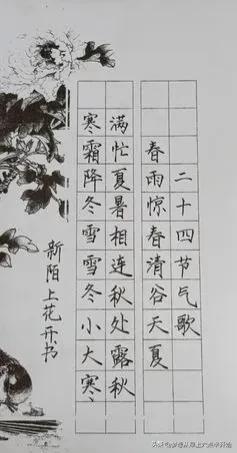 二十四节气歌
春雨惊春清谷天夏
满忙夏暑相连秋处露秋
寒霜降冬雪雪冬小大寒
新陌上花开书